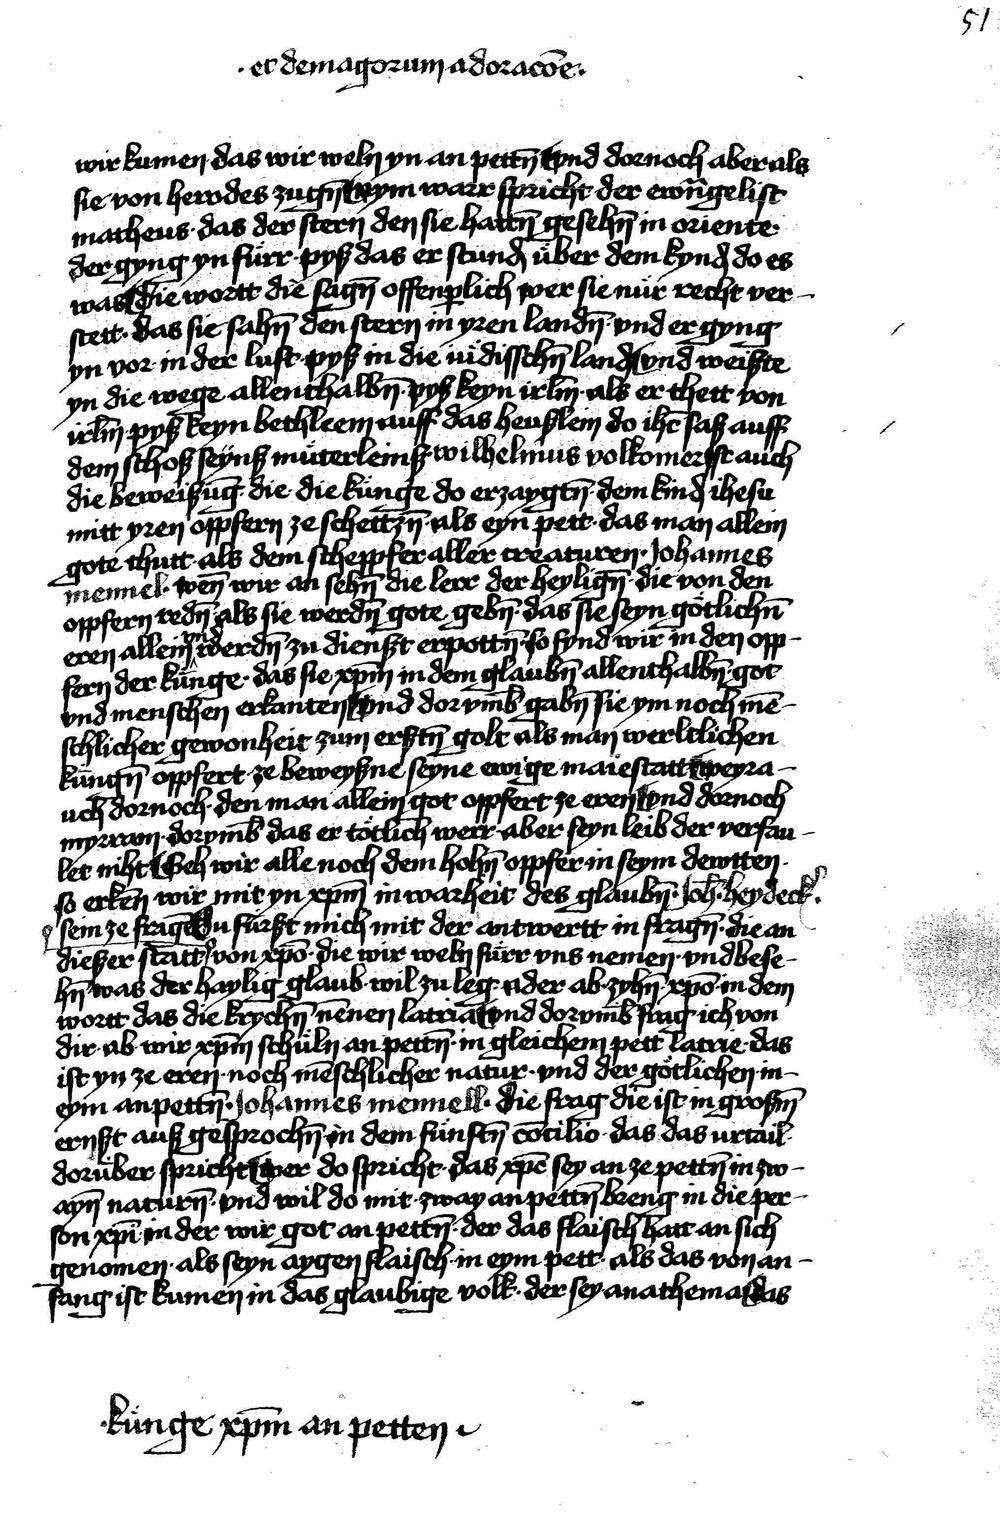 51
· et de magorum adoracōe ·
wir kumen das wir weln yn an pettn̄ vnd dornoch aber als
sie von herodes zugn̄ nym warr spricht der ewn̄gelist
matheus · das der stern den sie hattn̄ gesehn̄ in oriente ·
der gyng yn fürr · pyß das er stund über dem kynd do es
was die wortt die sagn̄ offenperlich wer sie nür recht ver-
stett · das sie sahn̄ den stern in yren landn̄ · vnd er gyng
yn vor in der luft · pyß in die iüdisschn̄ land vnd weißte
yn die wege allenthalbn̄ · pyß keyn irlm̄ · als er thett von
irlm̄ pyß keyn bethleem auff das heußlein do ihc̄ saß auff
dem schoß seÿnß müterleinß · wilhelmus volkomer ist auch
die beweißūg · die die künge do erzaygtn̄ · dem kind ihesu
mitt yren oppfern ze schettzn̄ · als eyn pett · das man allein
gote thutt als dem scheppfer aller creaturen · Johannes
mennel · wen̄ wir an sehn̄ die lerr der heylign̄ · die von den
oppfern redn̄ als sie werdn̄ gote gebn̄ · das sie seyn götlichn̄
vnd
eren allein werdn̄ zu dienßt erpottn̄ · so synd wir in den opp-
fern der künge · das sie xpm̄ in dem glaubn̄ allenthalbn̄ got
vnd menschen erkanten vnd dorvmb̄ gabn̄ sie ym noch mē-
schlicher gewonheit zum erßtn̄ golt als man werltlichen
küngn̄ oppfert · ze beweyßne seyne ewige maiestatt weyra-
uch dornoch · den man allein got oppfert ze eren vnd dornoch
myrram · dorvmb̄ das er tötlich werr · aber seyn leib der verfau-
let niht Geh wir alle noch dem hohn̄ oppfer · in seym dewtten ·
so erken̄ wir mit yn xpm̄ in warheit des glaubn̄ · Joh̄ · heydeck ·
sem ze fragē Du fürßt mich mit der antwertt in fragn̄ · die an
dießer statt · von xpō · die wir weln fürr vns nemen · vnd bese-
hn̄ was der haylig glaub wil zu leg · ader ab zyhn̄ xpō in dem
wortt das die krychn̄ nēnen latria vnd dorvmb̄ frag ich von
dir · ab wir xpm̄ schüln an pettn̄ · in gleichem pett latrie · das
ist yn ze eren · noch mēschlicher natur · vnd der götlichen · in-
eym anpettn̄ · Johannes mennell · die frag die ist in großm̄
ernßt auß gesprochn̄ in dem fünftn̄ cōcilio · das das urtail ·
dorüber spricht wer do spricht · das xpc̄ sey an ze pettn̄ in zw-
ayn̄ naturn̄ · vnd wil do mit · zway an pettn̄ breng in die per-
son xpī in der wir got an pettn̄ · der das flaisch hatt an sich
genomen · als seyn aygen flaisch · in eym pett · als das von an-
fang ist kumen in das glaubige volk · der sey anathema das
· künge xpm̄ an petten ·